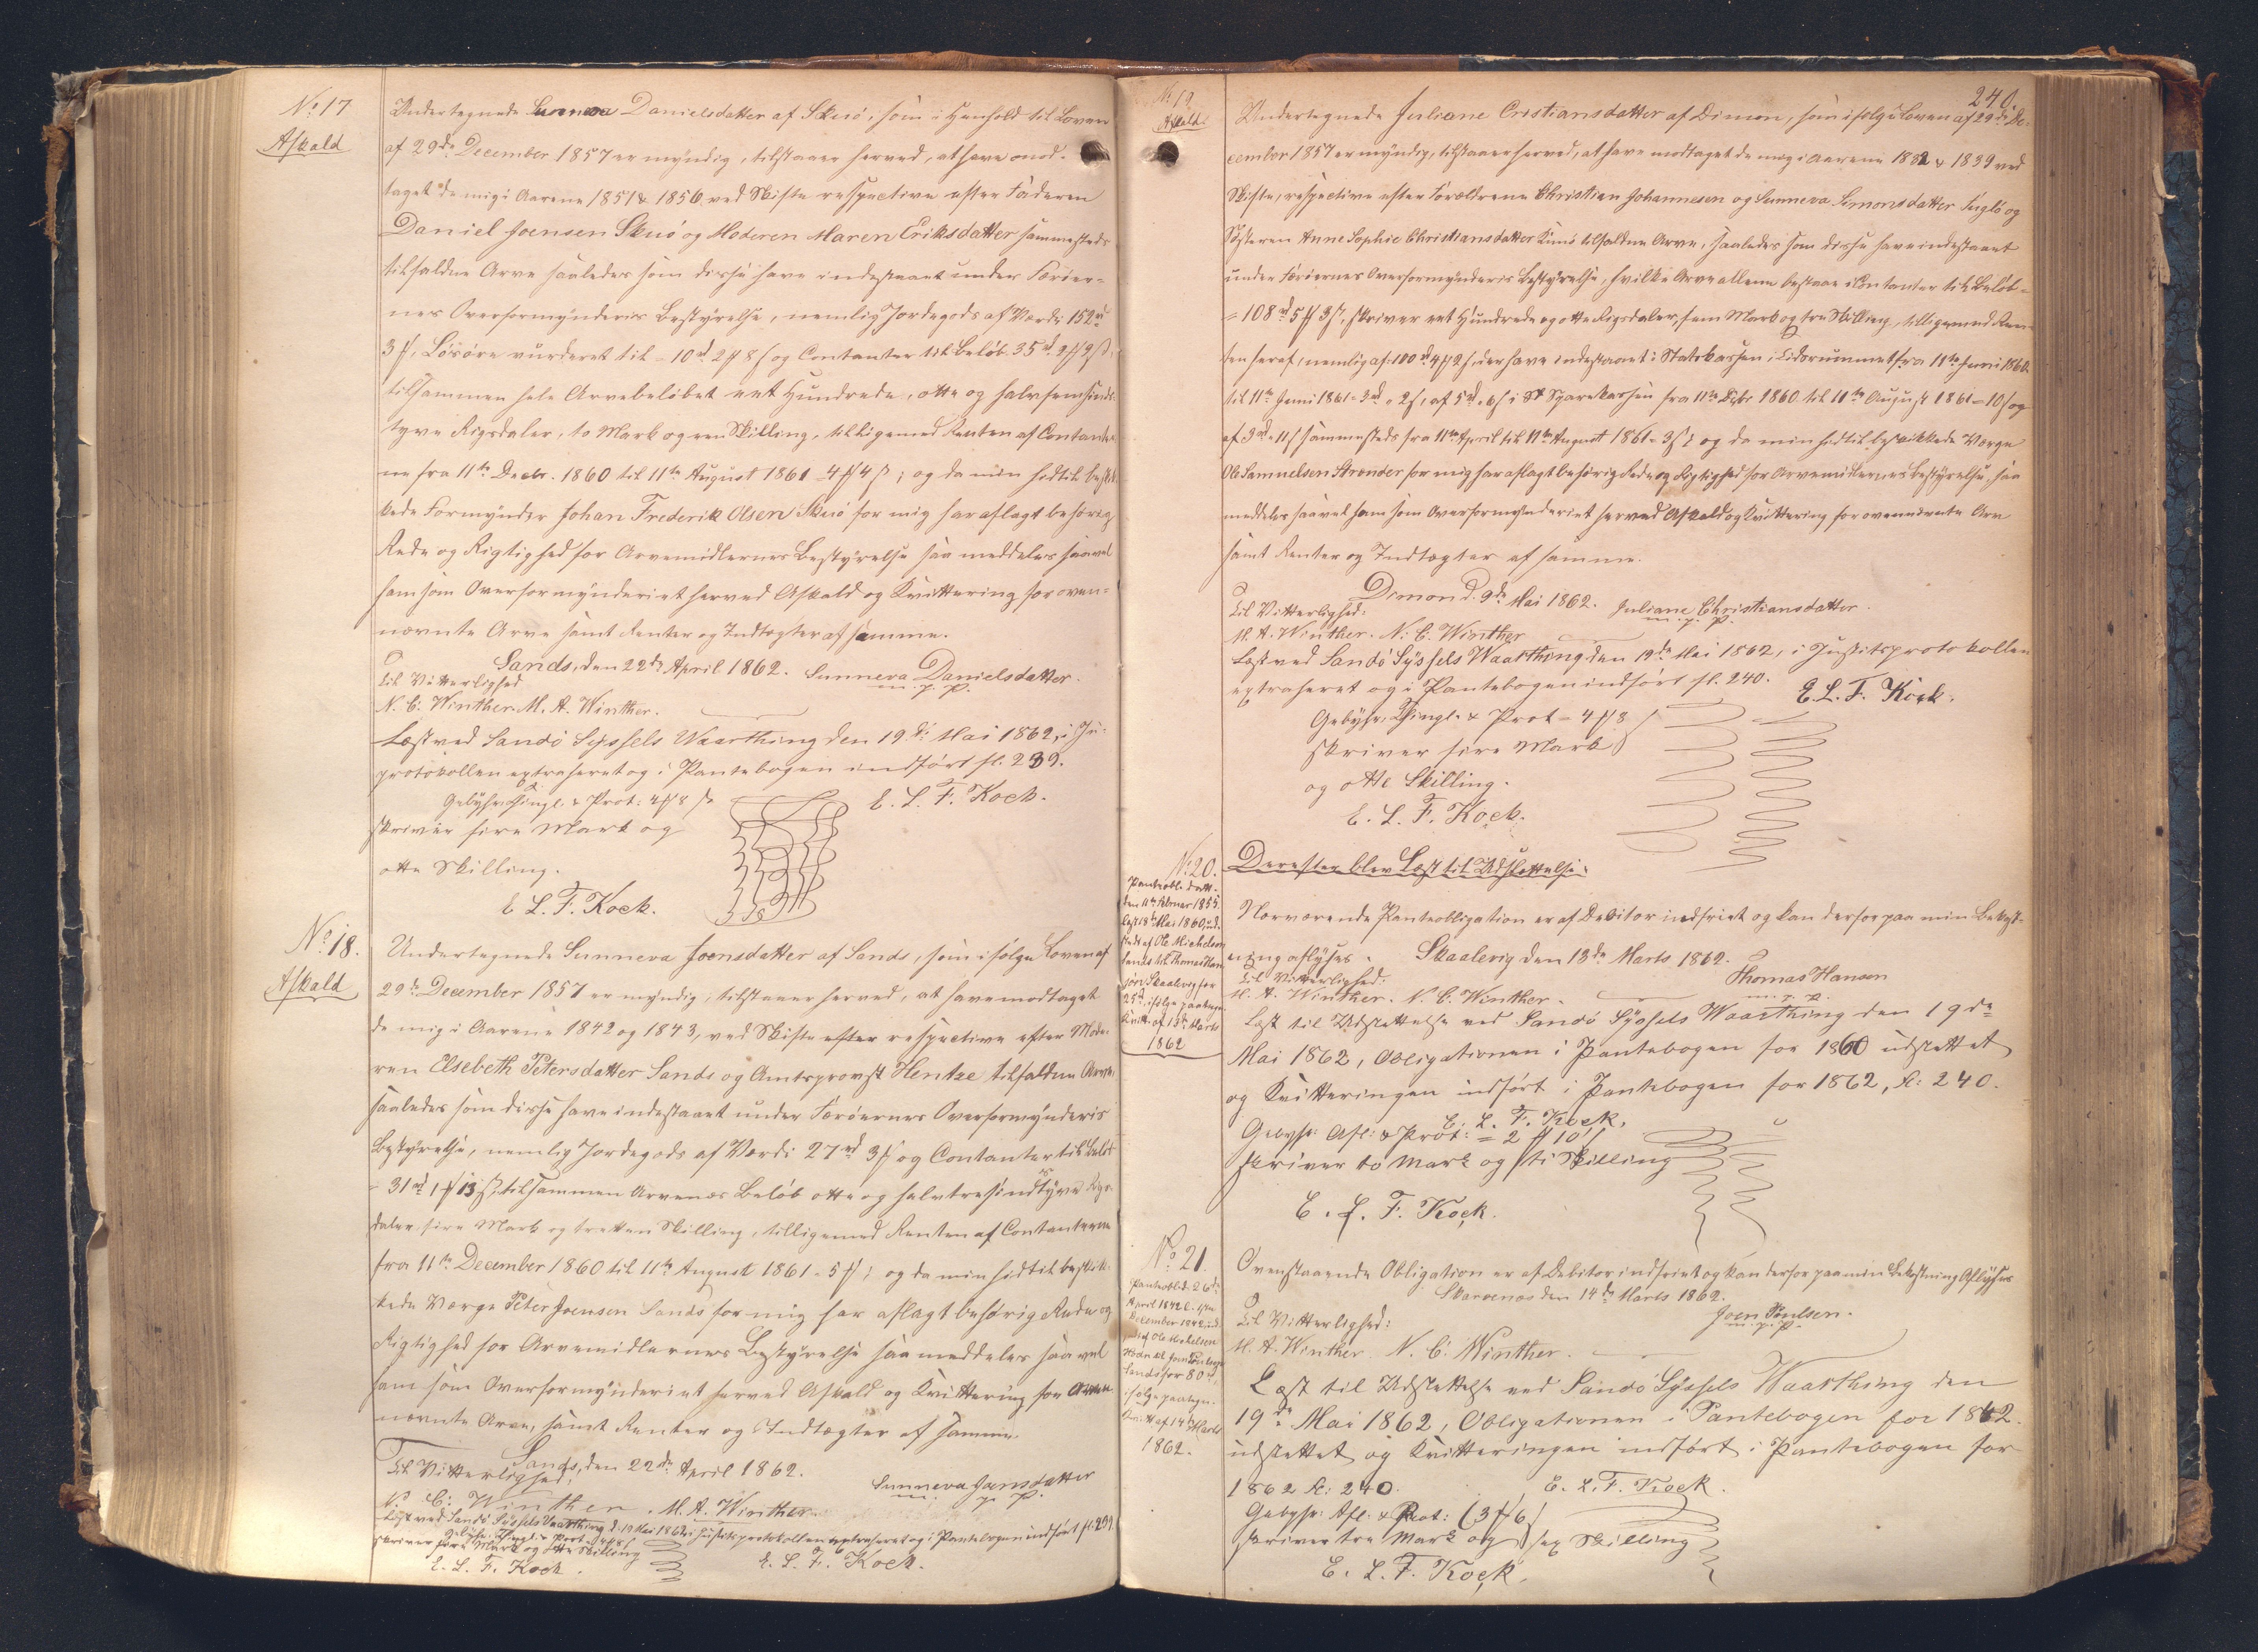 No 17
Afkald
Undertegnede Sunneva Danielsdatter af Skuö, som i Henhold til Loven
af 29de December 1857 er myndig, tilstaaer herved, at have mod-
taget de mig i Aarene 1851 & 1856 ved Skifte respective efter Faderen
Daniel Joensen Skuö og Moderen Maren Eriksdatter sammesteds
tilfaldne Arve saaledes som disse have indestaaet under Færöer-
nes Overformynderies Bestyrelse, nemlig Jordegods af Værdi 152 rd
3 ꝟ, Lösöre vurderet til = 10 rd 2 ꝟ 8 ß og Contanter til Belöb 35 rd 2 ꝟ 9 ß,
tilsammen hele Arvebelöbet eet Hundrede, otte og halvfemsinds-
tyve Rigsdaler, to Mark og een Skilling, tilligemed Renten af Contanter-
ne fra 11te Decbr. 1860 til 11te August 1861 = 4 ꝟ 4 ß; og da min hidtil beskik-
kede Formynder Johan Frederik Olsen Skuö for mig har aflagt behörig
Rede og Rigtighed for Arvemidlernes Bestyrelse saa meddeles saavel
ham som Overformynderiet herved Afkald og Kvittering for oven-
nævnte Arve samt Renter og Indtægter af samme.
Sands, den 22de April 1862. Sunneva Danielsdatter
m. f. P.
Til Vitterlighed
N. C. Winther. M. A. Winther.
Læst ved Sandö Syssels Vaarthing den 19de Mai 1862, i Ju-
protokollen extraheret og i Pantebogen indfört fl. 239.
Gebyhr: Thingl. & Prot: 4 ꝟ 8 ß
E. L. F. Koch.
skriver fire Mark og
otte Skilling.
E. L. F. Koch.
No 18.
Afkald
Undertegnede Sunneva Joensdatter af Sands, som i fölge Loven af
29de December 1857 er myndig, tilstaaer herved, at have modtaget
de mig i Aarene 1842 og 1843, ved Skifte efter respective efter Mode-
ren Elsebeth Petersdatter Sands og Amtsprovst Hentze tilfaldne Arve,
saaledes som disse have indestaaet under Færöernes Overformynderies
Bestyrelse, nemlig Jordegods af Værdi 27 rd 3 ꝟ og Contanter til Belöb
= 31 rd 1 ꝟ 13 ß, tilsammen Arvenes Belöb otte og halvtresindstyve Rigs-
daler fire Mark og tretten Skilling, tilligemed Renten af Contanterne
fra 11te December 1860 til 11te August 1861 = 5 ꝟ; og da min hidtil beskik-
kede Værge Peter Joensen Sands for mig har aflagt behörig Rede og
Rigtighed for Arvemidlernes Bestyrelse saa meddeles saavel
ham som Overformynderiet herved Afkald og Kvittering for oven-
nævnte Arve, samt Renter og Indtægter af samme.
Sands, den 22de April 1862.
Til Vitterlighed:
Sunneva Joensdatter
m. f. P.
N. C. Winther. M. A. Winther.
Læst ved Sandö Syssels Vaarthing d. 19 Mai 1862 i Justitsprotokollen extraheret og i Pantebogen indfört fl. 239.
Gebyhr: Thingl. & Prot = 4 ꝟ 8 ß
skriver fire Mark og otte Skilling
E. L. F. Koch.
E. L. F. Koch.
240.
No 19
Afkald
Undertegnede Juliane Cristiansdatter af Dimon, som ifölge Loven af 29de De-
cember 1857 er myndig, tilstaaer herved, at have modtaget de mig i Aarene 1832 & 1839 ved
Skifte, respective efter Forældrene Christian Johannesen og Sunneva Simonsdatter og
Sösteren Anne Sophie Christiansdatter tilfaldne Arve, saaledes som disse have indestaaet
under Færöernes Overformynderies Bestyrelse, hvilke Arve allene bestaae i Contanter til Belöb
= 108 rd 5 ꝟ 3 ß, skriver eet Hundrede og otte Rigsdaler, fem Mark og tre Skilling, tilligemed Ren-
ten heraf, nemlig af: 100 rd 4 ꝟ 2 ß der have indestaaet i Statskassen, i Tidsrummet fra 11te Juni 1860
til 11te Juni 1861 = 3 rd " 2 ß, af 5 rd " 6 ß i St Sparekassen fra 11te Decbr 1860 til 11te August 1861 = 10 ß og
af 3 rd " 11 ß sammesteds fra 11te April til 11te August 1861 = 3 ß; og da min hidtil beskikkede Værge
Ole Samuelsen Strender for mig har aflagt behörig Rede og Rigtighed for Arvemidlernes Bestyrelse, saa
meddeles saavel ham som Overformynderiet herved Afkald og Kvittering for ovennævnte Arve
samt Renter og Indtægter af samme.
Dimon d. 9de Mai 1862. Juliane Christiansdatter
m. f. P.
Til Vitterlighed:
M. A. Winther. N. C. Winther
Læst ved Sandö Syssels Vaarthing den 19de Mai 1862, i Justitsprotokollen
extraheret og i Pantebogen indfört fl. 240.
E. L. F. Koch.
Gebyhr: Thingl. & Prot = 4 ꝟ 8 ß
skriver fire Mark
og otte Skilling.
E. L. F. Koch.
Derefter blev Læst til Udslettelse:
No 20.
Panteobl. datt.
den 11te Februar 1855.
læst 18de Mai 1860, ud-
stedt af Ole Michelsen
Sands til Thomas Han-
sen Skaalevig for
25 rd, ifölge paategn.
Kvitt. af 13de Marts
1862
Nærværende Panteobligation er af Debitor indfriet og kan derfor paa min Bekost-
ning aflyses. Skaalevig den 13de Marts 1862.
Thomas Hansen
m. f. P.
Til Vitterlighed:
M. A. Winther. N. C. Winther.
Læst til Udslettelse ved Sandö Syssels Vaarthing den 19de
Mai 1862, Obligationen i Pantebogen for 1860 udslettet
og Kvitteringen indfört i Pantebogen for 1862, fl: 240.
E. L. F. Koch.
Gebyhr: Afl: & Prot: = 2 ꝟ 10 ß
skriver to Mark og ti Skilling
E. L. F. Koch.
No 21.
Panteobl. d. 26de
April 1842 l. 4de
December 1842 ud-
af Ole Mikkelsen
til Joen Poulsen
Sands for 80 rd,
ifölge paategn.
Kvitt. af 14de Marts
1862.
Ovenstaaende Obligation er af Debitor indfriet og kan derfor paa min Bekostning Aflyses
Skarvenæs den 14de Marts 1862.
Joen Poulsen.
m. f. P.
Til Vitterlighed:
M. A. Winther. N. C. Winther.
Læst til Udslettelse ved Sandö Syssels Vaarthing den
19de Mai 1862, Obligationen i Pantebogen for 1842
udslettet og Kvitteringen indfört i Pantebogen for
1862 fl: 240.
E. L. F. Koch.
Gebyhr: Afl: & Prot: (3 ꝟ 6 ß)
skriver tre Mark og sex Skilling
E. L. F. Koch.